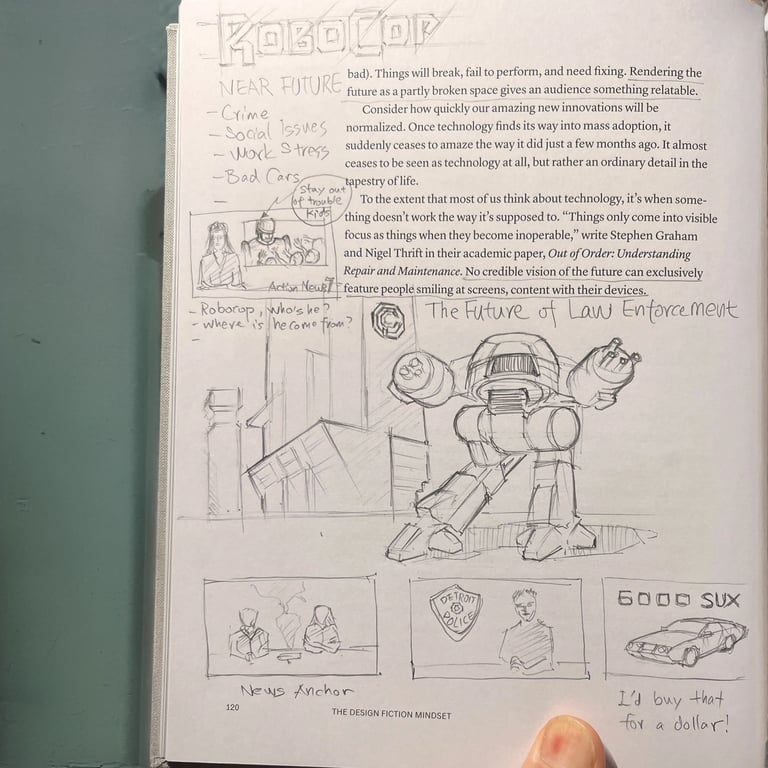 ROBOCOP
NEAR FUTURE
- Crime
- Social Issues
- Work Stress
- Bad Cars
-
bad). Things will break, fail to perform, and need fixing. Rendering the
future as a partly broken space gives an audience something relatable.
Consider how quickly our amazing new innovations will be
normalized. Once technology finds its way into mass adoption, it
suddenly ceases to amaze the way it did just a few months ago. It almost
ceases to be seen as technology at all, but rather an ordinary detail in the
tapestry of life.
To the extent that most of us think about technology, it’s when some-
thing doesn’t work the way it’s supposed to. “Things only come into visible
focus as things when they become inoperable,” write Stephen Graham
and Nigel Thrift in their academic paper, Out of Order: Understanding
Repair and Maintenance. No credible vision of the future can exclusively
feature people smiling at screens, content with their devices.
Stay out
of trouble
kids
Action News 7
- Robocop, who's he?
- where is he come from?
-
The Future of Law Enforcement
DETROIT
POLICE
6000 SUX
News Anchor
I'd buy that
for a dollar!
120
THE DESIGN FICTION MINDSET